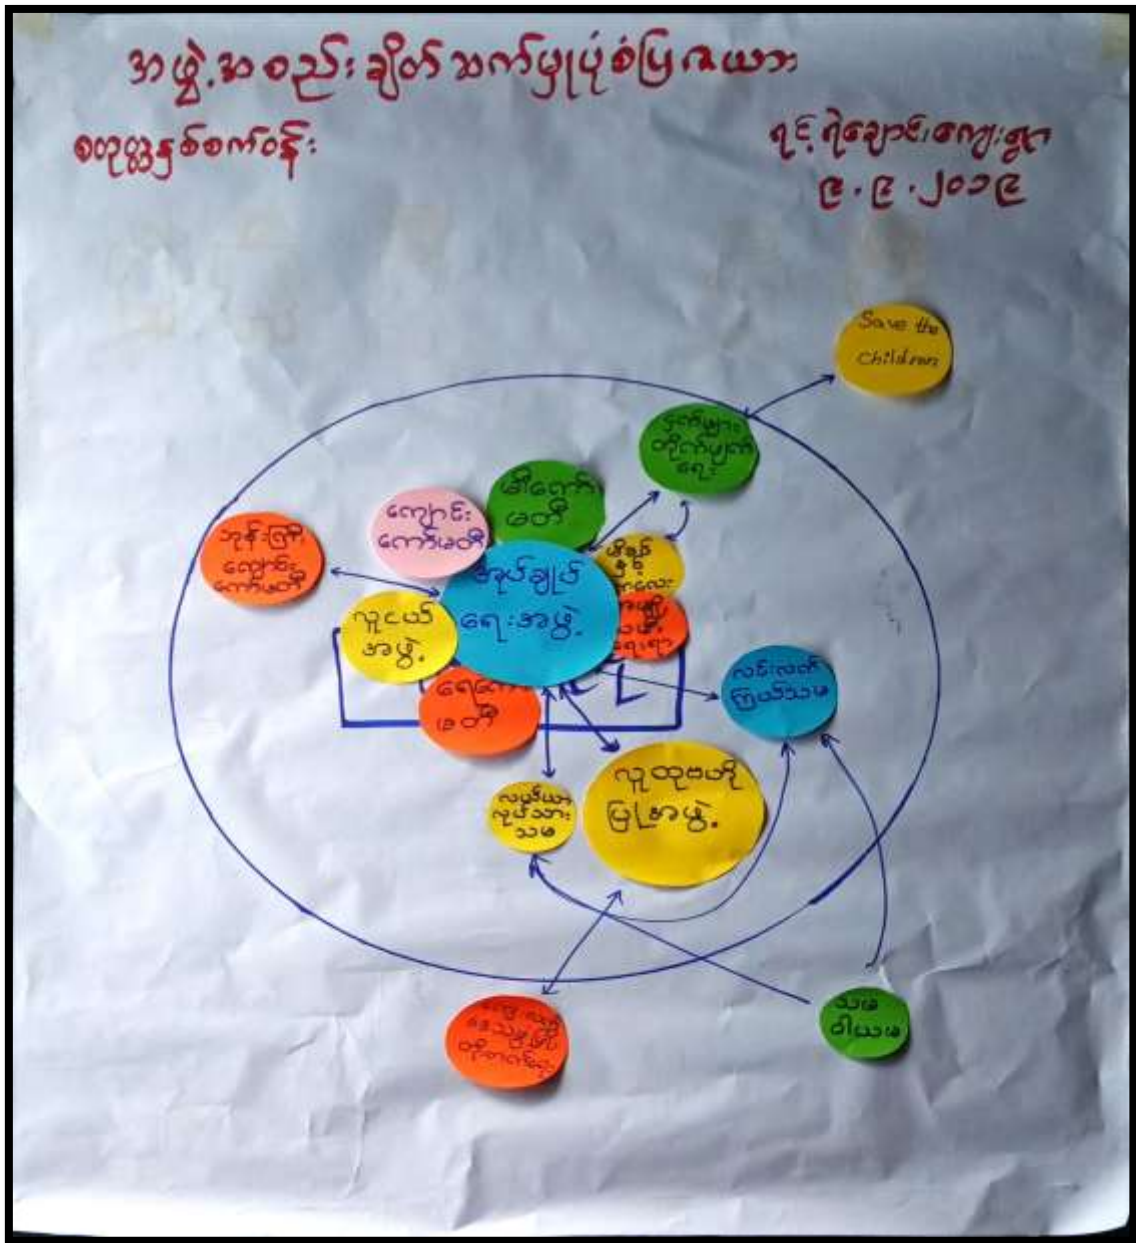 အဖွဲ့အစည်းချိတ်ဆက်မှုပုံစံပြဇယား
စတုတ္ထနှစ်စက်ဝန်း
ရင့်ရဲချောင်းကျေးရွာ
၉.၉.၂၀၁၉
Save the
Children
ငှက်ဖျား
တိုက်ဖျက်
ရေး
မီးကော်
မတီ
ကျောင်း
ကော်မတီ
ဘုန်းကြီး
ကျောင်း
ကော်မတီ
အုပ်ချုပ်
ရေးအဖွဲ့
မိခင်
နှင့်
ကလေး
လူငယ်
အဖွဲ့
ရေကော်
မတီ
လင်းလက်
ကြယ်သမ
လယ်ယာ
လုပ်သား
သမ
လူထုဗဟို
ပြုအဖွဲ့
သမ
ဝါယမ
ကျေးလက်
ဒေသဖွံ့ဖြိုး
တိုးတက်ရေး